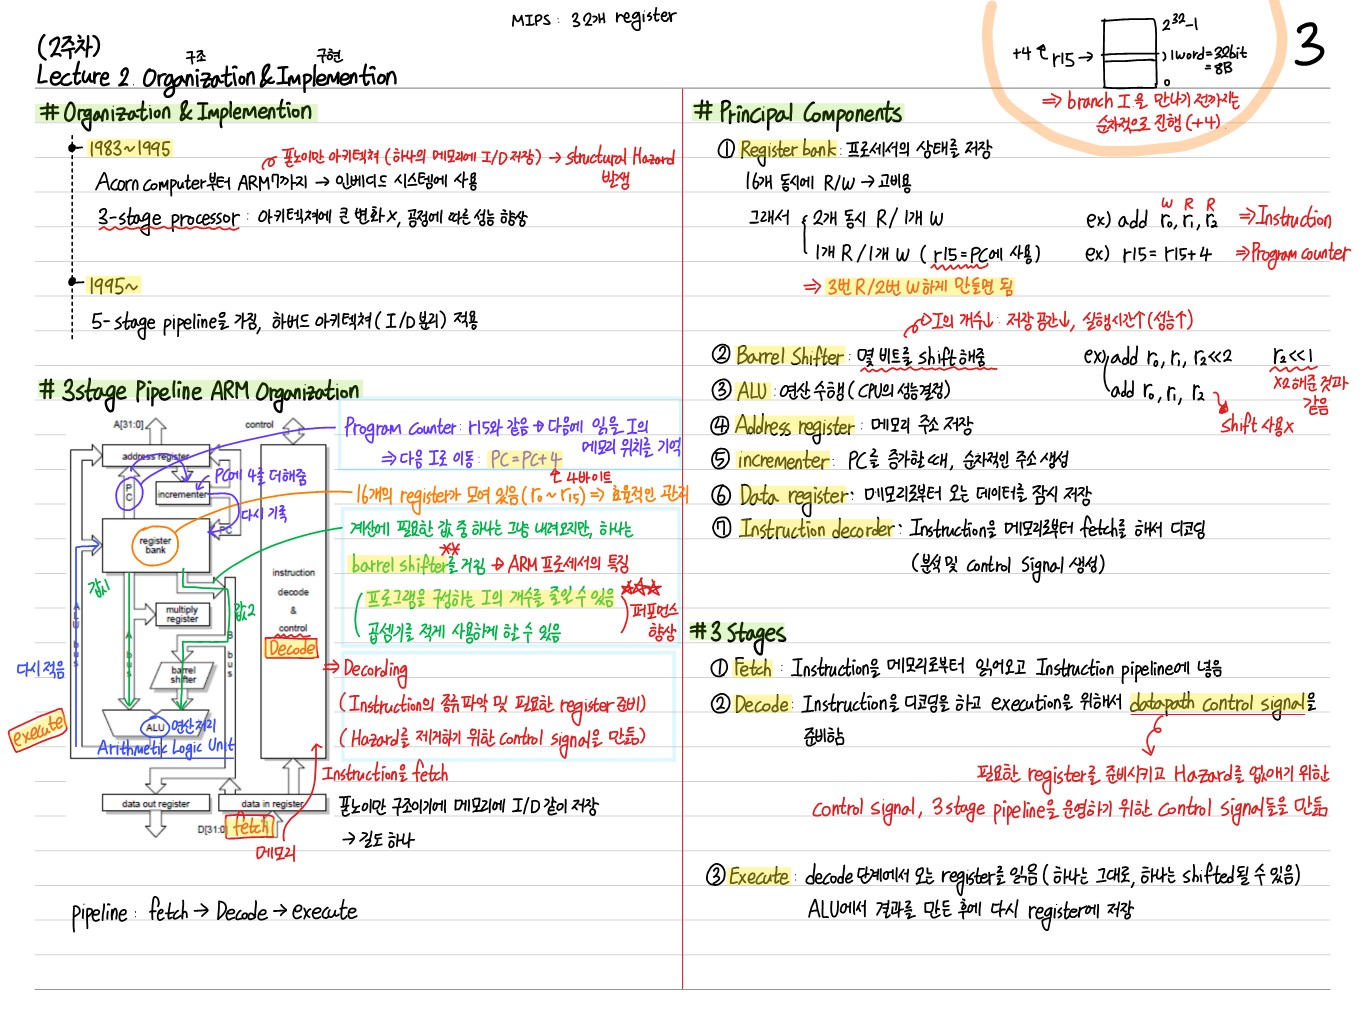 MIPS : 32개 register
(2주차)
구조 구현
Lecture 2. Organization & Implemention
3
2^32-1
+4 r15 → 1word = 32bit
= 8B
0
⇒ branch I을 만나기 전까지는
순차적으로 진행 (+4)
# Organization & Implemention
1983~1995
폰노이만 아키텍쳐 (하나의 메모리에 I/D 저장) → structural Hazard
발생
Acorn computer부터 ARM7까지 → 임베디드 시스템에 사용
3-stage processor : 아키텍쳐에 큰 변화 X, 공정에 따른 성능 향상
1995~
5-stage pipeline을 가짐, 하버드 아키텍쳐 (I/D 분리) 적용
# 3stage Pipeline ARM Organization
A[31:0]
control
address register
PC
incrementer
PC
PC에 4를 더해줌
다시 기록
register
bank
값1
값2
multiply
register
ALU bus
A bus
B bus
barrel
shifter
다시 적음
execute
ALU
연산처리
Arithmetic Logic Unit
instruction
decode
&
control
Decode
data out register
data in register
D[31:0]
fetch
메모리
Program counter : r15와 같음 → 다음에 읽을 I의
메모리 위치를 기억
⇒ 다음 I로 이동 : PC = PC+4
4바이트
16개의 register가 모여 있음 (r0 ~ r15) ⇒ 효율적인 관리
계산에 필요한 값 중 하나는 그냥 내려오지만, 하나는
barrel shifter를 거침 → ARM 프로세서의 특징
프로그램을 구성하는 I의 개수를 줄일 수 있음
곱셈기를 적게 사용하게 할 수 있음
퍼포먼스
향상
⇒ Decording
(Instruction의 종류 파악 및 필요한 register 준비)
(Hazard를 제거하기 위한 control signal을 만듦)
Instruction을 fetch
폰노이만 구조이기에 메모리에 I/D 같이 저장
→ 길도 하나
pipeline : fetch → Decode → execute
# Principal Components
① Register bank : 프로세서의 상태를 저장
16개 동시에 R/W → 고비용
그래서 2개 동시 R / 1개 W
W R R
ex) add r0, r1, r2 ⇒ Instruction
1개 R / 1개 W ( r15 = PC에 사용)
ex) r15 = r15+4 ⇒ Program counter
⇒ 3번 R / 2번 W하게 만들면 됨
I의 개수↓ : 저장 공간↓, 실행시간↑ (성능↑)
② Barrel Shifter : 몇 비트를 shift 해줌
ex) add r0, r1, r2 << 2
r2 << 1
X2 해준 것과
같음
③ ALU : 연산 수행 (CPU의 성능결정)
add r0, r1, r2
shift 사용 X
④ Address register : 메모리 주소 저장
⑤ incrementer : PC를 증가할 때, 순차적인 주소 생성
⑥ Data register : 메모리로부터 오는 데이터를 잠시 저장
⑦ Instruction decorder : Instruction을 메모리로부터 fetch를 해서 디코딩
(분석 및 control signal 생성)
# 3 Stages
① Fetch : Instruction을 메모리로부터 읽어오고 Instruction pipeline에 넣음
② Decode : Instruction을 디코딩을 하고 execution을 위해서 datapath control signal을
준비함
필요한 register를 준비시키고 Hazard를 없애기 위한
control signal, 3stage pipeline을 운영하기 위한 control signal들을 만듦
③ Execute : decode 단계에서 오는 register를 읽음 (하나는 그대로, 하나는 shifted 될 수 있음)
ALU에서 결과를 만든 후에 다시 register에 저장